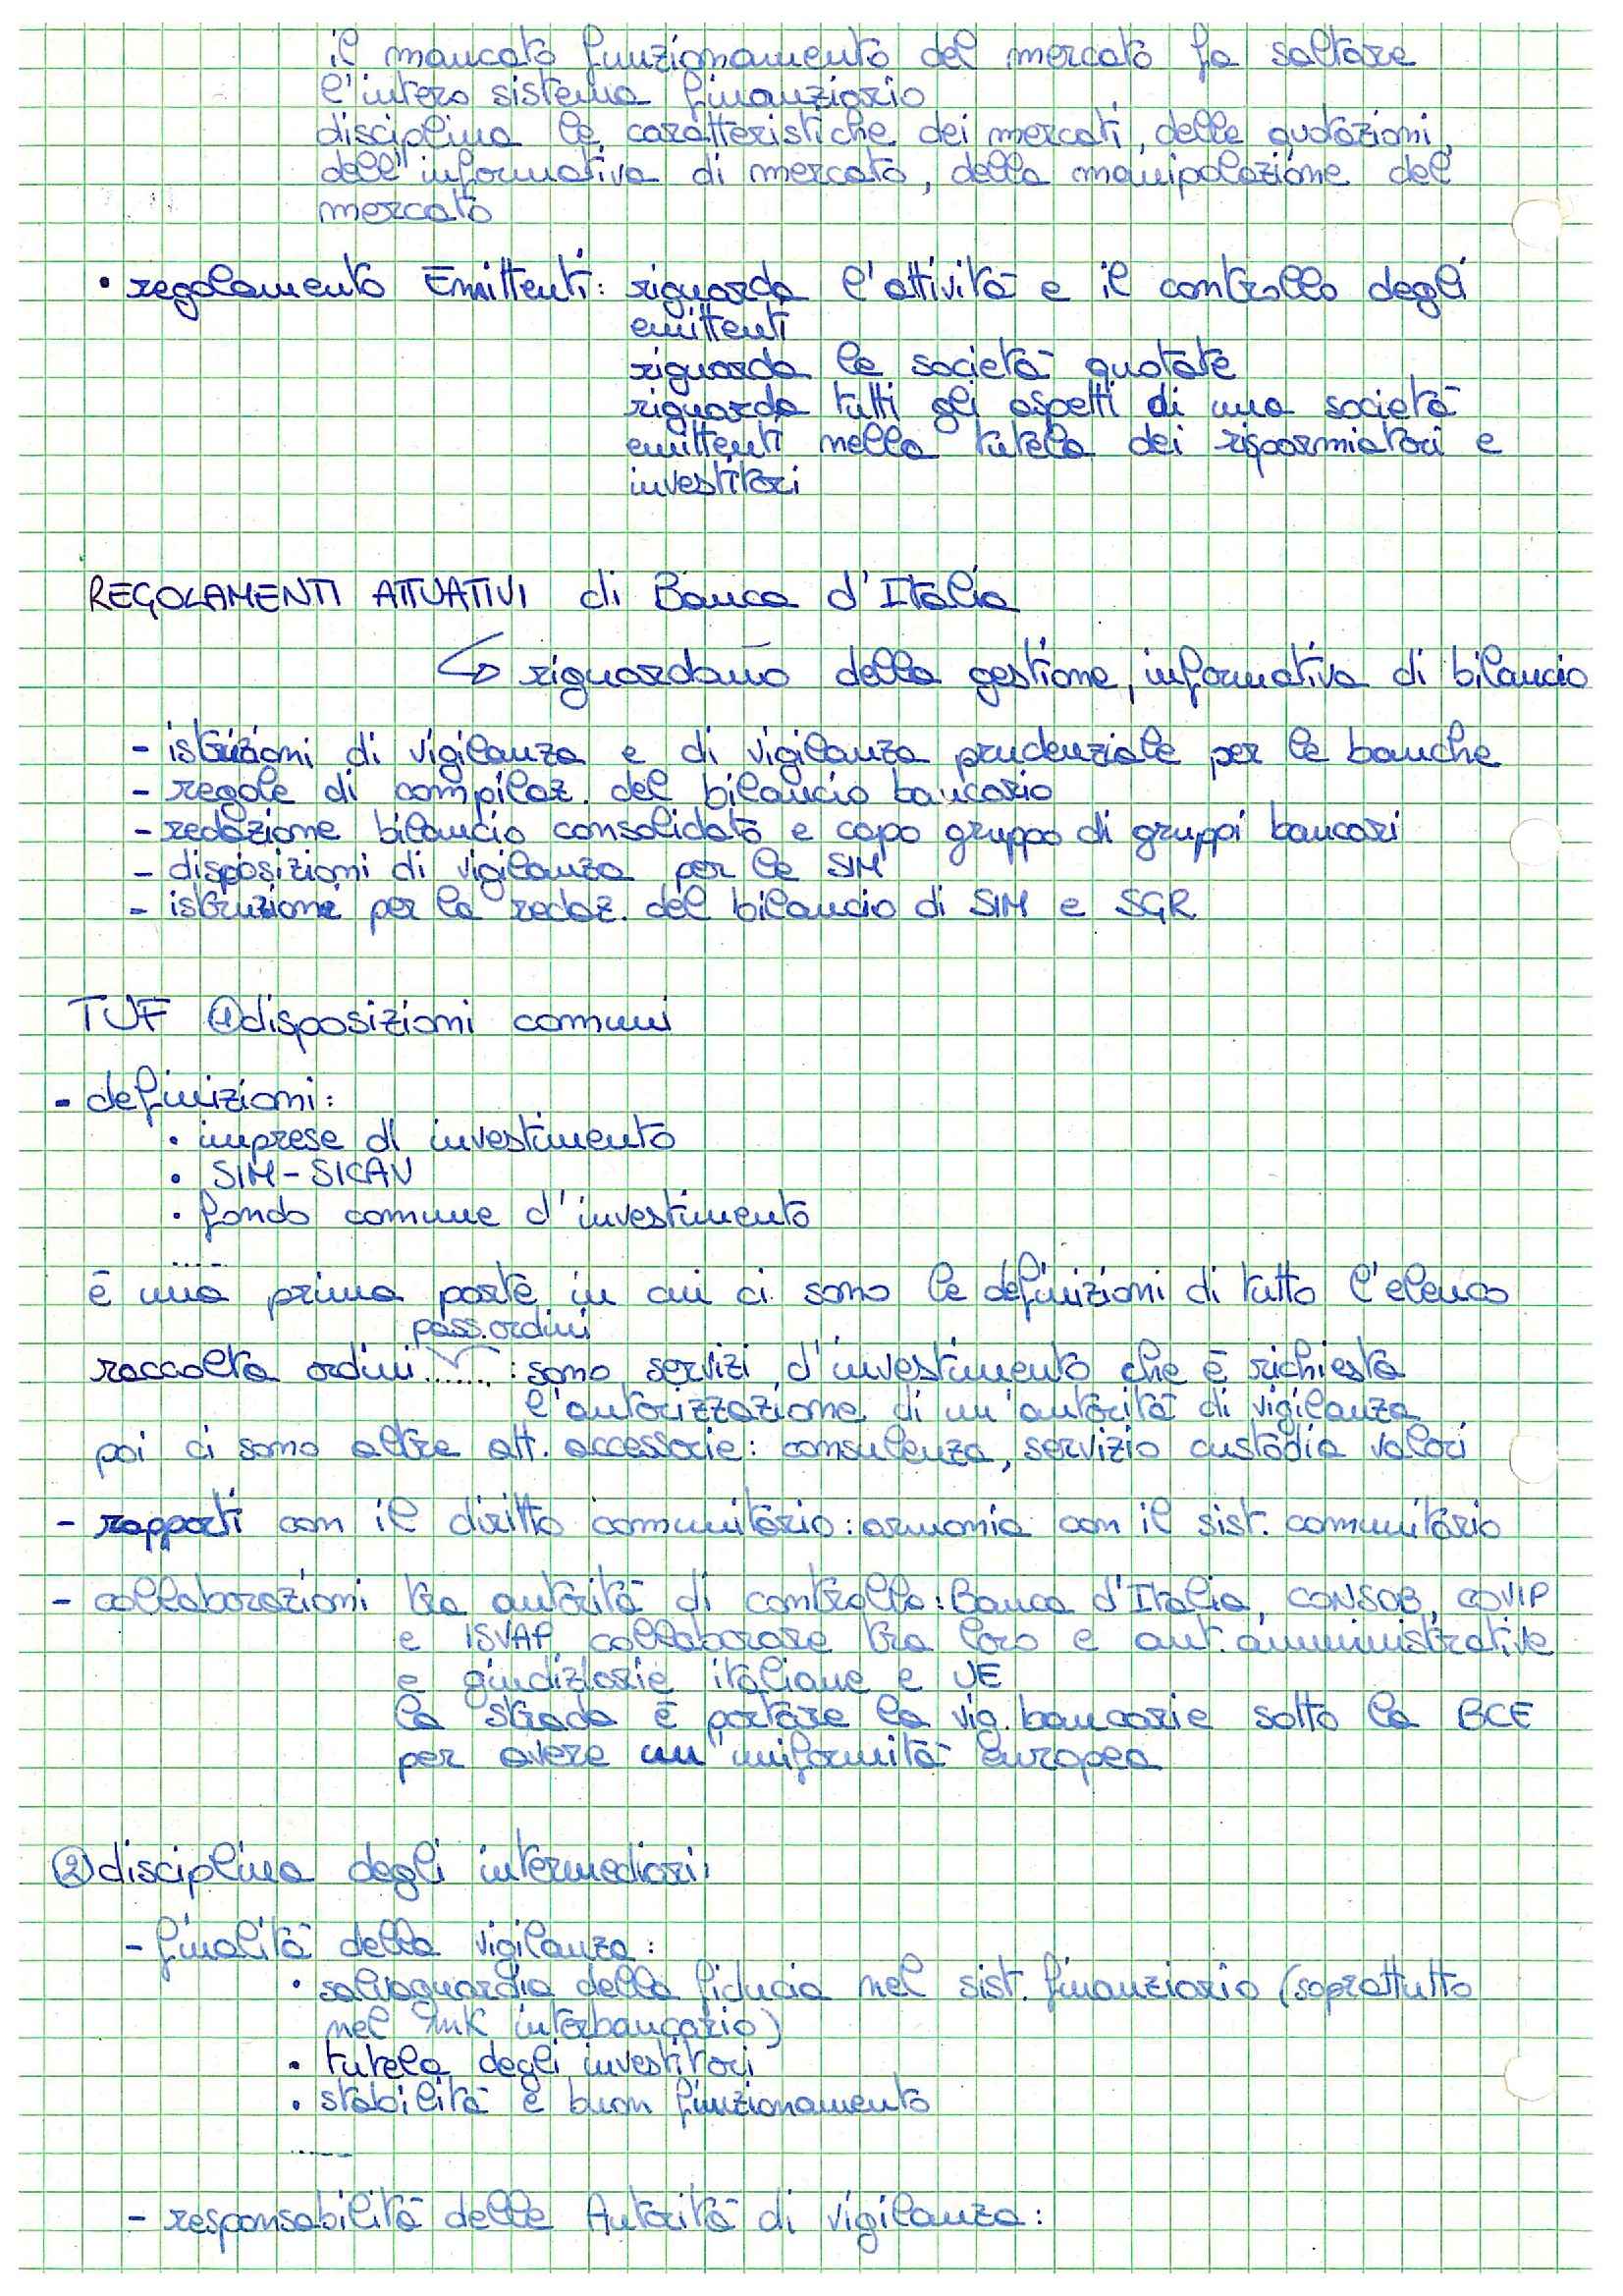 il mancato funzionamento del mercato fa saltare
l'intero sistema finanziario
disciplina le caratteristiche dei mercati, delle quotazioni,
dell'informativa di mercato, della manipolazione del
mercato
• regolamento Emittenti: riguarda l'attività e il controllo degli
emittenti
riguarda le società quotate
riguarda tutti gli aspetti di una società
emittenti nella tutela dei risparmiatori e
investitori
REGOLAMENTI ATTUATIVI di Banca d'Italia
↳ riguardano della gestione, informativa di bilancio
- istruzioni di vigilanza e di vigilanza prudenziale per le banche
- regole di compilaz. del bilancio bancario
- redazione bilancio consolidato e capo gruppo di gruppi bancari
- disposizioni di vigilanza per le SIM
- istruzione per la redaz. del bilancio di SIM e SGR
TUF ① disposizioni comuni
- definizioni:
• imprese di investimento
• SIM - SICAV
• fondo comune d'investimento
.....
è una prima parte in cui ci sono le definizioni di tutto l'elenco
pass. ordini
raccolta ordini.......: sono servizi d'investimento che è richiesta
l'autorizzazione di un'autorità di vigilanza
poi ci sono altre att. accessorie: consulenza, servizio custodia valori
- rapporti con il diritto comunitario: armonia con il sist. comunitario
- collaborazioni tra autorità di controllo: Banca d'Italia, CONSOB, COVIP
e ISVAP collaborare tra loro e aut. amministrative
e giudiziarie italiane e UE
la strada è portare la vig. bancarie sotto la BCE
per avere un'uniformità europea
② disciplina degli intermediari:
- finalità della vigilanza:
• salvaguardia della fiducia nel sist. finanziario (soprattutto
nel mk interbancario)
• tutela degli investitori
• stabilità e buon funzionamento
......
- responsabilità delle Autorità di vigilanza: